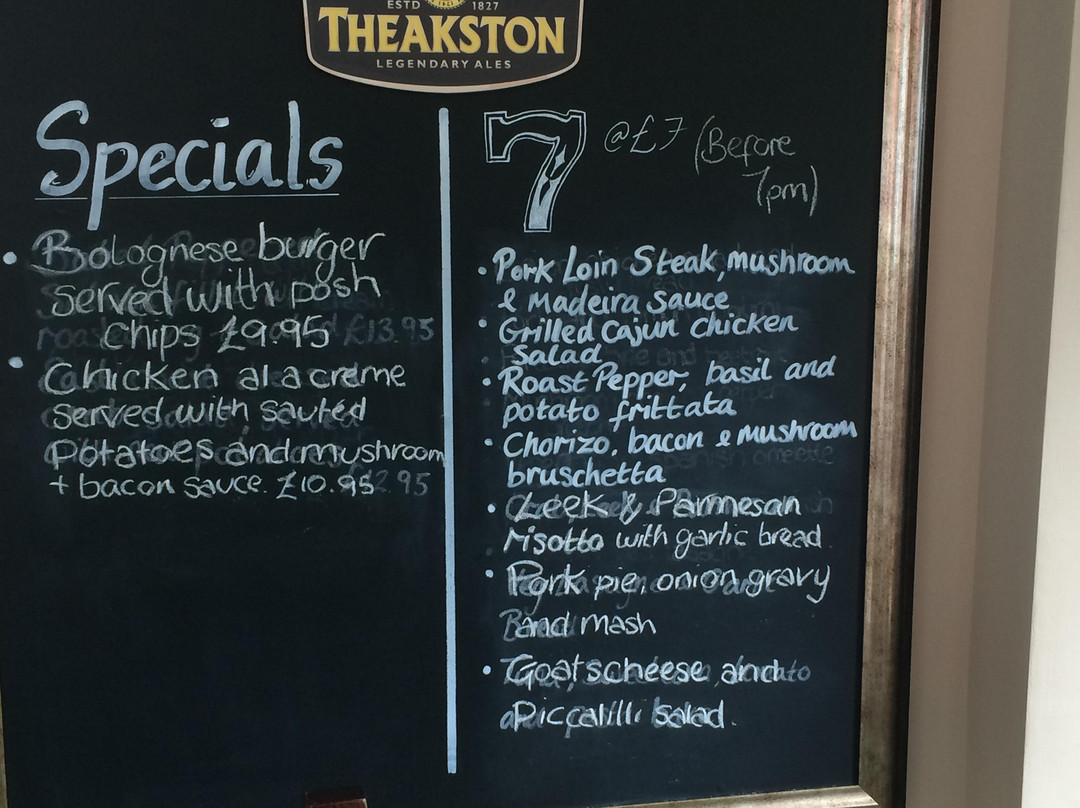 ESTD 1827
THEAKSTON
LEGENDARY ALES
Specials
• Bolognese burger
served with posh
chips £9.95
• Chicken a la creme
served with sauted
Potatoes and mushroom
+ bacon sauce. £10.95
7 @ £7 (Before
7pm)
• Pork Loin Steak, mushroom
& Madeira sauce
• Grilled Cajun chicken
Salad
• Roast Pepper, basil and
potato frittata
• Chorizo, bacon & mushroom
bruschetta
• Leek & Parmesan
risotto with garlic bread
• Pork pie, onion gravy
and mash
• Goats cheese and
Piccalilli salad.